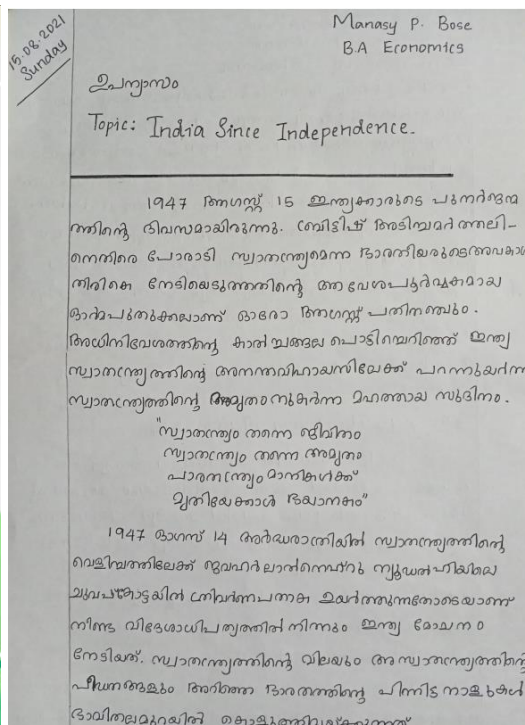 15.08.2021
Sunday
Manasy P. Bose
B.A Economics
ഉപന്യാസം
Topic: India Since Independence.
1947 ആഗസ്റ്റ് 15 ഇന്ത്യക്കാരുടെ പുനർജന്മ
ത്തിന്റെ ദിവസമായിരുന്നു. ബ്രിട്ടീഷ് അടിച്ചമർത്തലി-
നെതിരെ പോരാടി സ്വാതന്ത്ര്യമെന്ന ഭാരതീയരുടെ
തിരികെ നേടിയെടുത്തതിന്റെ ആവേശപൂർവ്വകമായ
ഓർമ്മപുതുക്കലാണ് ഓരോ ആഗസ്റ്റ് പതിനഞ്ചും.
അധിനിവേശത്തിന്റെ പൊട്ടിച്ചെറിഞ്ഞ് ഇന്ത്യ
സ്വാതന്ത്ര്യത്തിന്റെ അനന്തവിഹായസിലേക്ക് പറന്നുയർന്ന
സ്വാതന്ത്ര്യത്തിന്റെ അമൃതം നുകർന്ന മഹത്തായ സുദിനം.
"സ്വാതന്ത്ര്യം തന്നെ ജീവിതം
സ്വാതന്ത്ര്യം തന്നെ അമൃതം
പാരതന്ത്ര്യം മാനികൾക്ക്
മൃതിയേക്കാൾ ഭയാനകം"
1947 ഓഗസ് 14 അർദ്ധരാത്രിയിൽ സ്വാതന്ത്ര്യത്തിന്റെ
വെളിച്ചത്തിലേക്ക് ജവഹർലാൽനെഹ്റു ന്യൂഡൽഹിയിലെ
ചുവപ്കോട്ടയിൽ ത്രിവർണപതാക ഉയർത്തുന്നതോടെയാണ്
നീണ്ട വിദേശാധിപത്യത്തിൽ നിന്നും ഇന്ത്യ മോചനം
നേടിയത്. സ്വാതന്ത്ര്യത്തിന്റെ വിലയും അസ്വാതന്ത്ര്യത്തിന്റെ
പീഢനങ്ങളും അറിഞ്ഞ ഭാരതത്തിന്റെ പിന്നിട്ട നാളുകൾ
ഭാവിതലമുറയിൽ